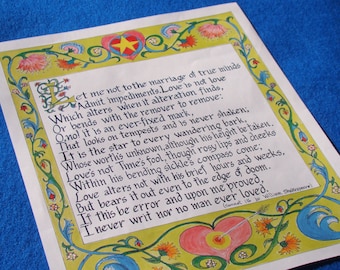 Let me not to the marriage of true minds
Admit impediments. Love is not love
Which alters when it alteration finds,
Or bends with the remover to remove:
O no! it is an ever fixed mark,
That looks on tempests and is never shaken;
It is the star to every wandering bark,
Whose worth's unknown, although his height be taken.
Love's not Time's fool, though rosy lips and cheeks
Within his bending sickle's compass come;
Love alters not with his brief hours and weeks,
But bears it out even to the edge of doom.
If this be error and upon me proved,
I never writ nor no man ever loved.
William Shakespeare